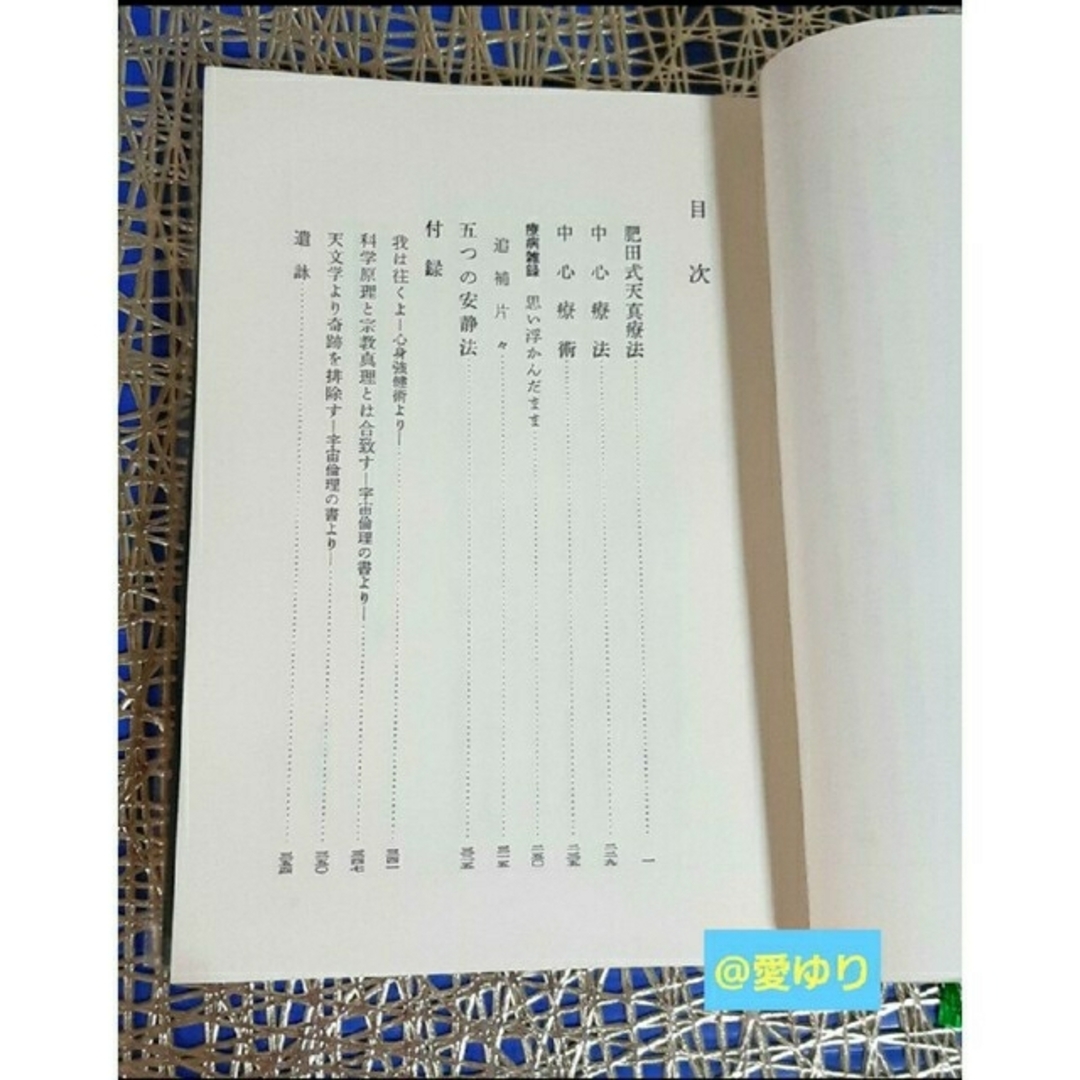 目次
肥田式天真療法 一
中心療法 二二九
中心療術 二三五
療病雑録 思い浮かんだまま 二五〇
追補片々 三一五
五つの安静法 三二五
付録
我は往くよ―心身強健術より― 三四一
科学原理と宗教真理とは合致す―宇宙倫理の書より― 三四七
天文学より奇跡を排除す―宇宙倫理の書より― 三五〇
遺詠 三五四
@愛ゆり